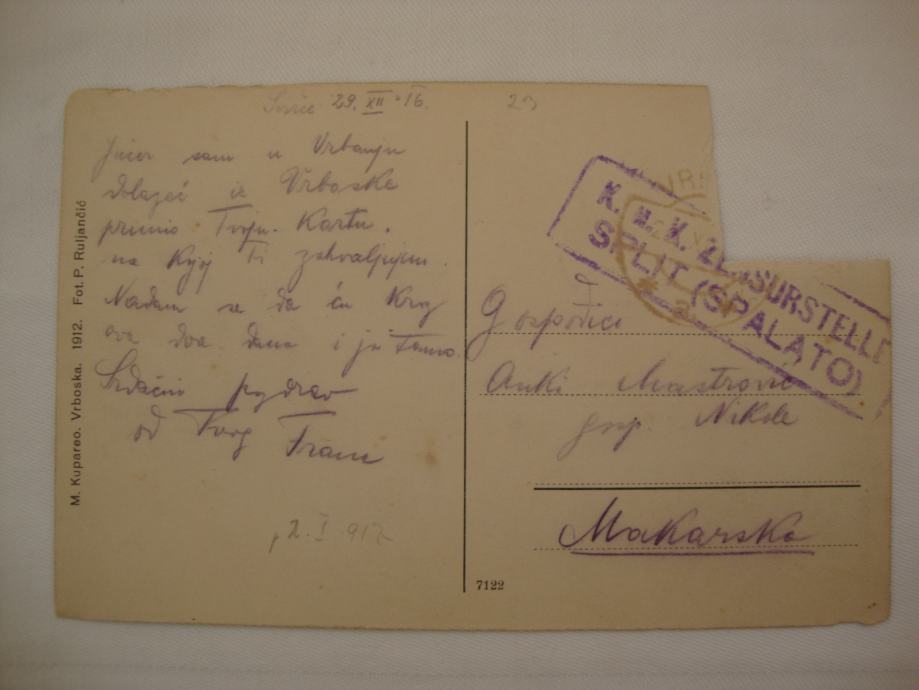 29. XII. 16.
Jučer sam u Vrbanju
dolazeć iz Vrboske
primio Tvoju Kartu,
na kojoj Ti zahvaljujem.
Nadam se da ću kroz
ova dva dana i ja tamo.
Srdačni pozdrav
od Tvog Frane
2. I. 917
M. Kupareo. Vrboska. 1912. Fot. P. Ruljančić
23
K. u. K. ZENSURSTELLE
SPLIT (SPALATO)
Gospođici
Anki Mastrović
gosp. Nikole
Makarska
7122